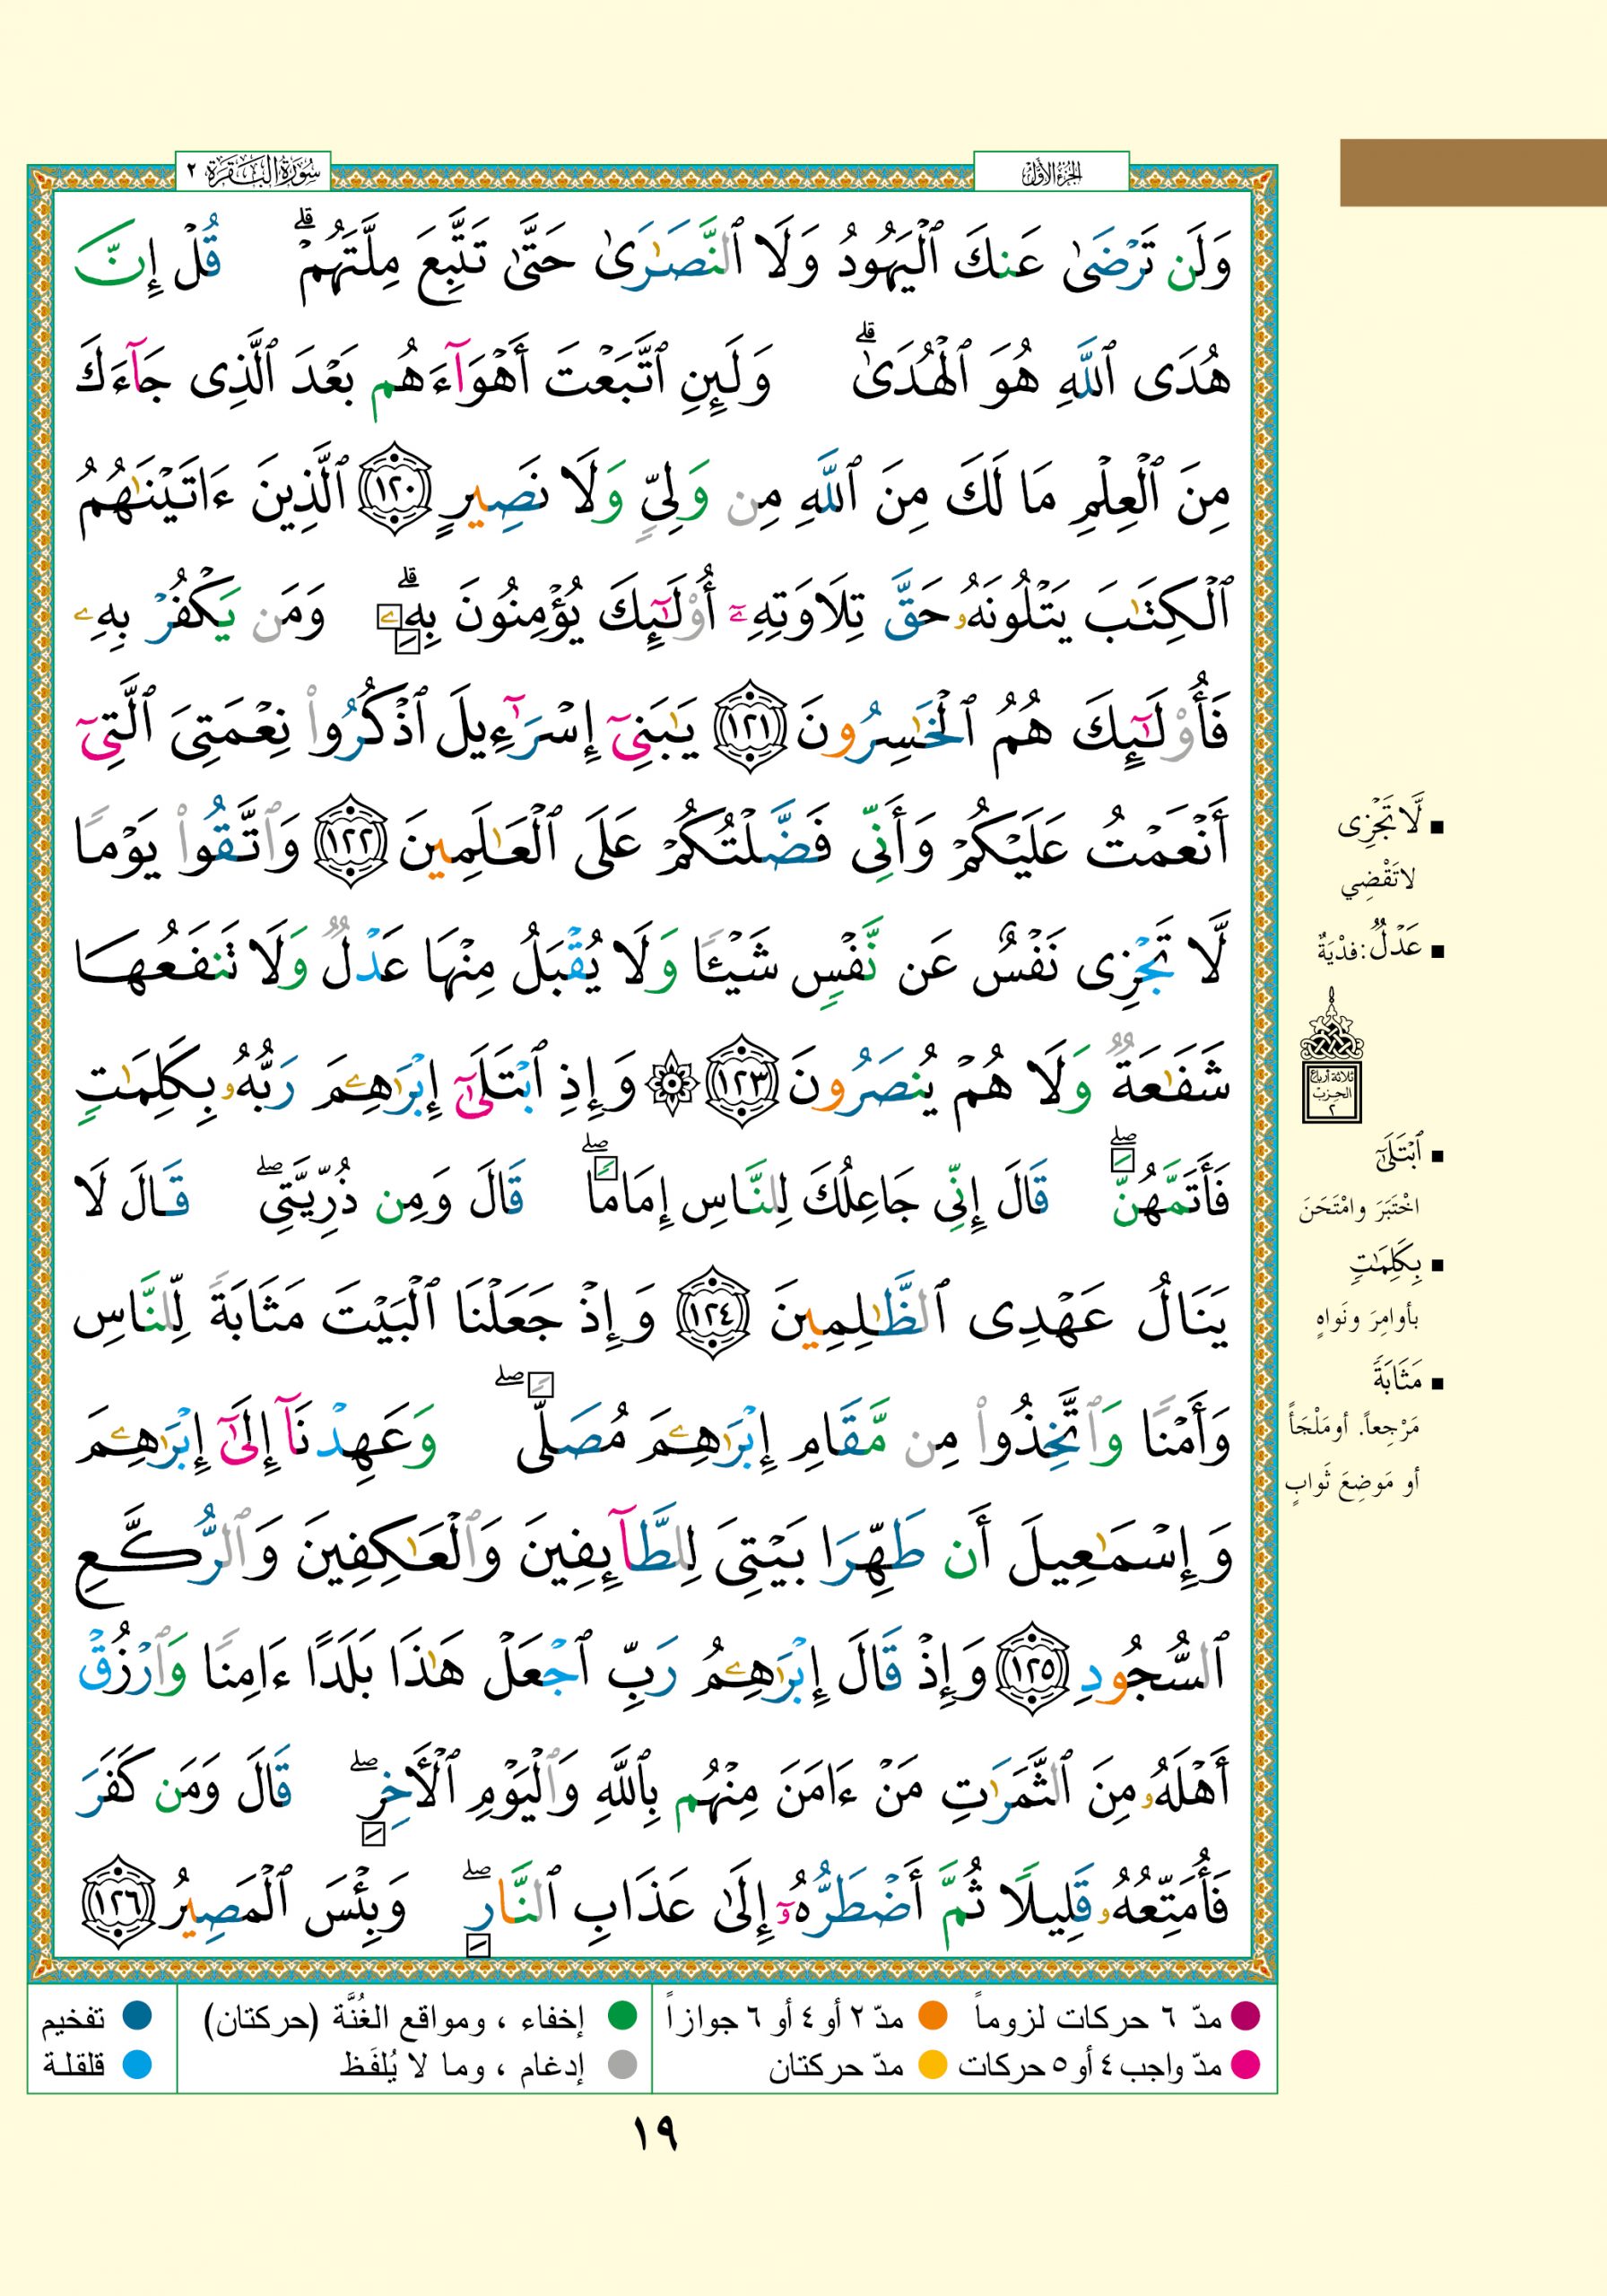 الجزء الأول
سورة البقرة ٢
وَلَن تَرْضَىٰ عَنكَ ٱلْيَهُودُ وَلَا ٱلنَّصَٰرَىٰ حَتَّىٰ تَتَّبِعَ مِلَّتَهُمْ ۗ قُلْ إِنَّ
هُدَى ٱللَّهِ هُوَ ٱلْهُدَىٰ ۗ وَلَئِنِ ٱتَّبَعْتَ أَهْوَآءَهُم بَعْدَ ٱلَّذِى جَآءَكَ
مِنَ ٱلْعِلْمِ مَا لَكَ مِنَ ٱللَّهِ مِن وَلِىٍّ وَلَا نَصِيرٍ ١٢٠ ٱلَّذِينَ ءَاتَيْنَٰهُمُ
ٱلْكِتَٰبَ يَتْلُونَهُۥ حَقَّ تِلَاوَتِهِۦٓ أُو۟لَٰٓئِكَ يُؤْمِنُونَ بِهِۦ ۗ وَمَن يَكْفُرْ بِهِۦ
فَأُو۟لَٰٓئِكَ هُمُ ٱلْخَٰسِرُونَ ١٢١ يَٰبَنِىٓ إِسْرَٰٓءِيلَ ٱذْكُرُوا۟ نِعْمَتِىَ ٱلَّتِىٓ
أَنْعَمْتُ عَلَيْكُمْ وَأَنِّى فَضَّلْتُكُمْ عَلَى ٱلْعَٰلَمِينَ ١٢٢ وَٱتَّقُوا۟ يَوْمًا
لَّا تَجْزِى نَفْسٌ عَن نَّفْسٍ شَيْـًٔا وَلَا يُقْبَلُ مِنْهَا عَدْلٌ وَلَا تَنفَعُهَا
شَفَٰعَةٌ وَلَا هُمْ يُنصَرُونَ ١٢٣ ۞ وَإِذِ ٱبْتَلَىٰٓ إِبْرَٰهِۦمَ رَبُّهُۥ بِكَلِمَٰتٍ
فَأَتَمَّهُنَّ ۖ قَالَ إِنِّى جَاعِلُكَ لِلنَّاسِ إِمَامًا ۖ قَالَ وَمِن ذُرِّيَّتِى ۖ قَالَ لَا
يَنَالُ عَهْدِى ٱلظَّٰلِمِينَ ١٢٤ وَإِذْ جَعَلْنَا ٱلْبَيْتَ مَثَابَةً لِّلنَّاسِ
وَأَمْنًا وَٱتَّخِذُوا۟ مِن مَّقَامِ إِبْرَٰهِۦمَ مُصَلًّى ۖ وَعَهِدْنَآ إِلَىٰٓ إِبْرَٰهِۦمَ
وَإِسْمَٰعِيلَ أَن طَهِّرَا بَيْتِىَ لِلطَّآئِفِينَ وَٱلْعَٰكِفِينَ وَٱلرُّكَّعِ
ٱلسُّجُودِ ١٢٥ وَإِذْ قَالَ إِبْرَٰهِۦمُ رَبِّ ٱجْعَلْ هَٰذَا بَلَدًا ءَامِنًا وَٱرْزُقْ
أَهْلَهُۥ مِنَ ٱلثَّمَرَٰتِ مَنْ ءَامَنَ مِنْهُم بِٱللَّهِ وَٱلْيَوْمِ ٱلْأَخِرِ ۖ قَالَ وَمَن كَفَرَ
فَأُمَتِّعُهُۥ قَلِيلًا ثُمَّ أَضْطَرُّهُۥٓ إِلَىٰ عَذَابِ ٱلنَّارِ ۖ وَبِئْسَ ٱلْمَصِيرُ ١٢٦
■ لَّا تَجْزِى
لا تَقْضِي
■ عَدْلٌ: فِدْيَةٌ
ثلاثة أرباع
الحزب
٢
■ ٱبْتَلَىٰٓ
اخْتَبَرَ وامْتَحَنَ
■ بِكَلِمَٰتٍ
بأوامِرَ ونَواهٍ
■ مَثَابَةً
مَرْجِعاً. أو مَلْجَأً
أو مَوضِعَ ثَوابٍ
مدّ ٦ حركات لزوماً
مدّ ٢ أو ٤ أو ٦ جوازاً
إخفاء ، ومواقع الغُنَّة (حركتان)
تفخيم
مدّ واجب ٤ أو ٥ حركات
مدّ حركتان
إدغام ، وما لا يُلفَظ
قلقلة
١٩